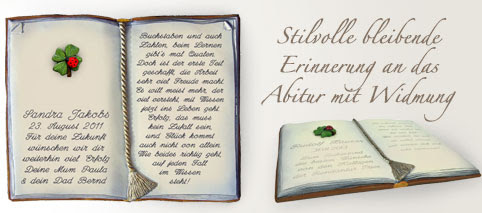 Sandra Jakobs
23. August 2011
Für deine Zukunft
wünschen wir dir
weiterhin viel Erfolg
Deine Mum Paula
& dein Dad Bernd
Buchstaben und auch
Zahlen, beim Lernen
gibt's mal Qualen.
Doch ist der erste Teil
geschafft, die Arbeit
sehr viel Freude macht.
Es will meist mehr, der
viel versteht, mit Wissen
jetzt ins Leben geht.
Erfolg, das muss
kein Zufall sein,
und Glück kommt
auch nicht von allein.
Wie beides richtig geht,
auf jeden Fall
im Wissen
steht!
Stilvolle bleibende
Erinnerung an das
Abitur mit Widmung